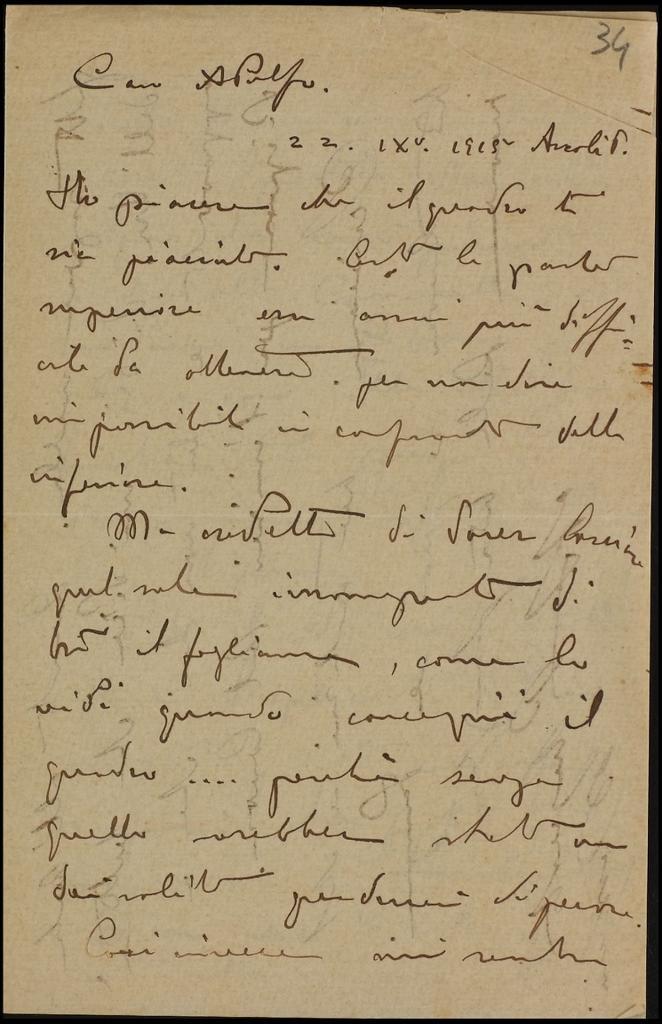 34
Caro Adolfo.
22. IXe. 1915 Ascoli P.
Ho piacere che il quadro ti
sia piaciuto. Certo la parte
superiore era assai più diffi=
cile da ottenere. per non dire
impossibile in confronto della
inferiore.
Ma credetti di dover lasciare
quel sole di
tra il fogliame, come lo
vidi quando concepii il
quadro .... perché senza
quello sarebbe stato uno
dei soliti di pecore.
Così invece mi sembra